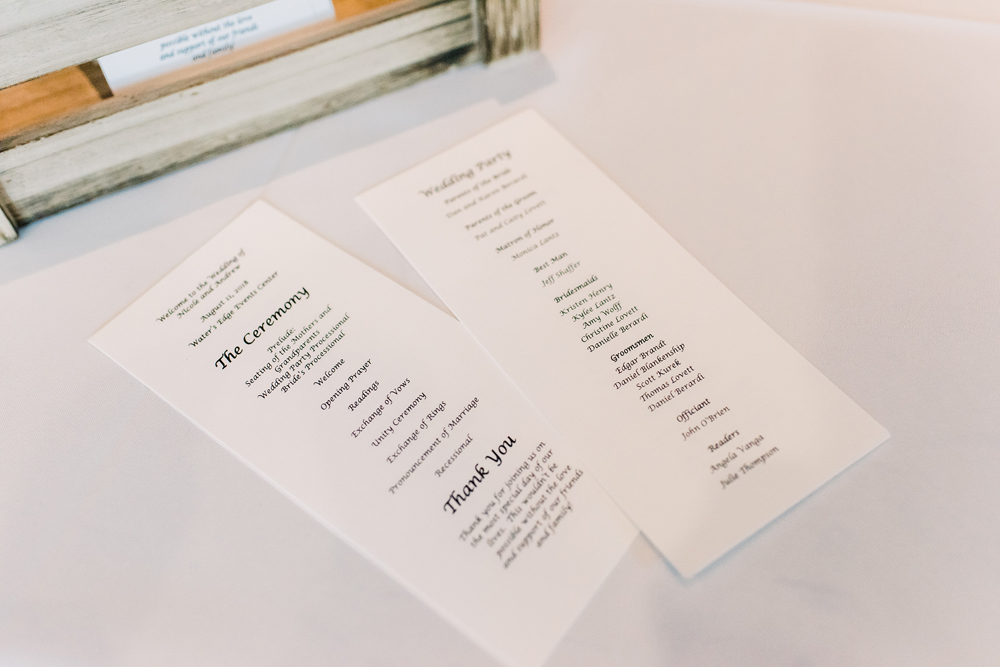 possible without the love
and support of our friends
and family!
Welcome to the Wedding of
Nicole and Andrew
August 11, 2018
Water's Edge Events Center
The Ceremony
Prelude:
Seating of the Mothers and
Grandparents
Wedding Party Processional
Bride's Processional
Welcome
Opening Prayer
Readings
Exchange of Vows
Unity Ceremony
Exchange of Rings
Pronouncement of Marriage
Recessional
Thank You
Thank you for joining us on
the most special day of our
lives. This wouldn't be
possible without the love
and support of our friends
and family!
Wedding Party
Parents of the Bride
Dan and Karen Berardi
Parents of the Groom
Pat and Cathy Lovett
Matron of Honor
Monica Lantz
Best Man
Jeff Shaffer
Bridesmaids
Kristen Henry
Kylee Lantz
Amy Wolff
Christine Lovett
Danielle Berardi
Groomsmen
Edgar Brandt
Daniel Blankenship
Scott Kurek
Thomas Lovett
Daniel Berardi
Officiant
John O'Brien
Readers
Angela Vanga
Julia Thompson